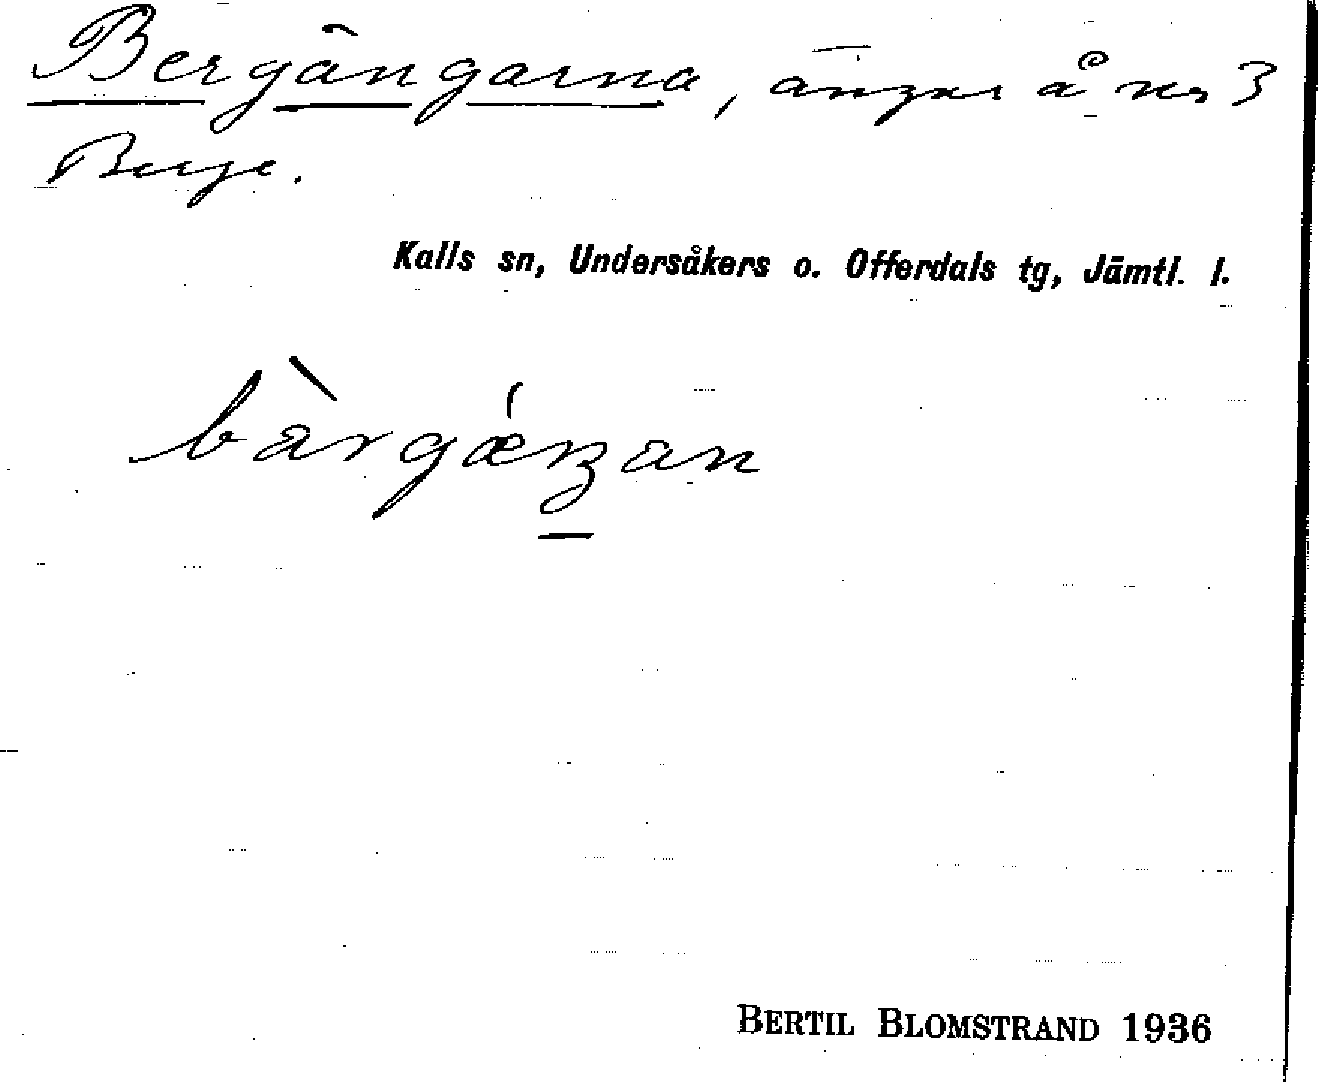 Bergängarna, ängar å nr 3
Berge.
Kalls sn, Undersåkers o. Offerdals tg, Jämtl. l.
bàrgǽŋan
BERTIL BLOMSTRAND 1936